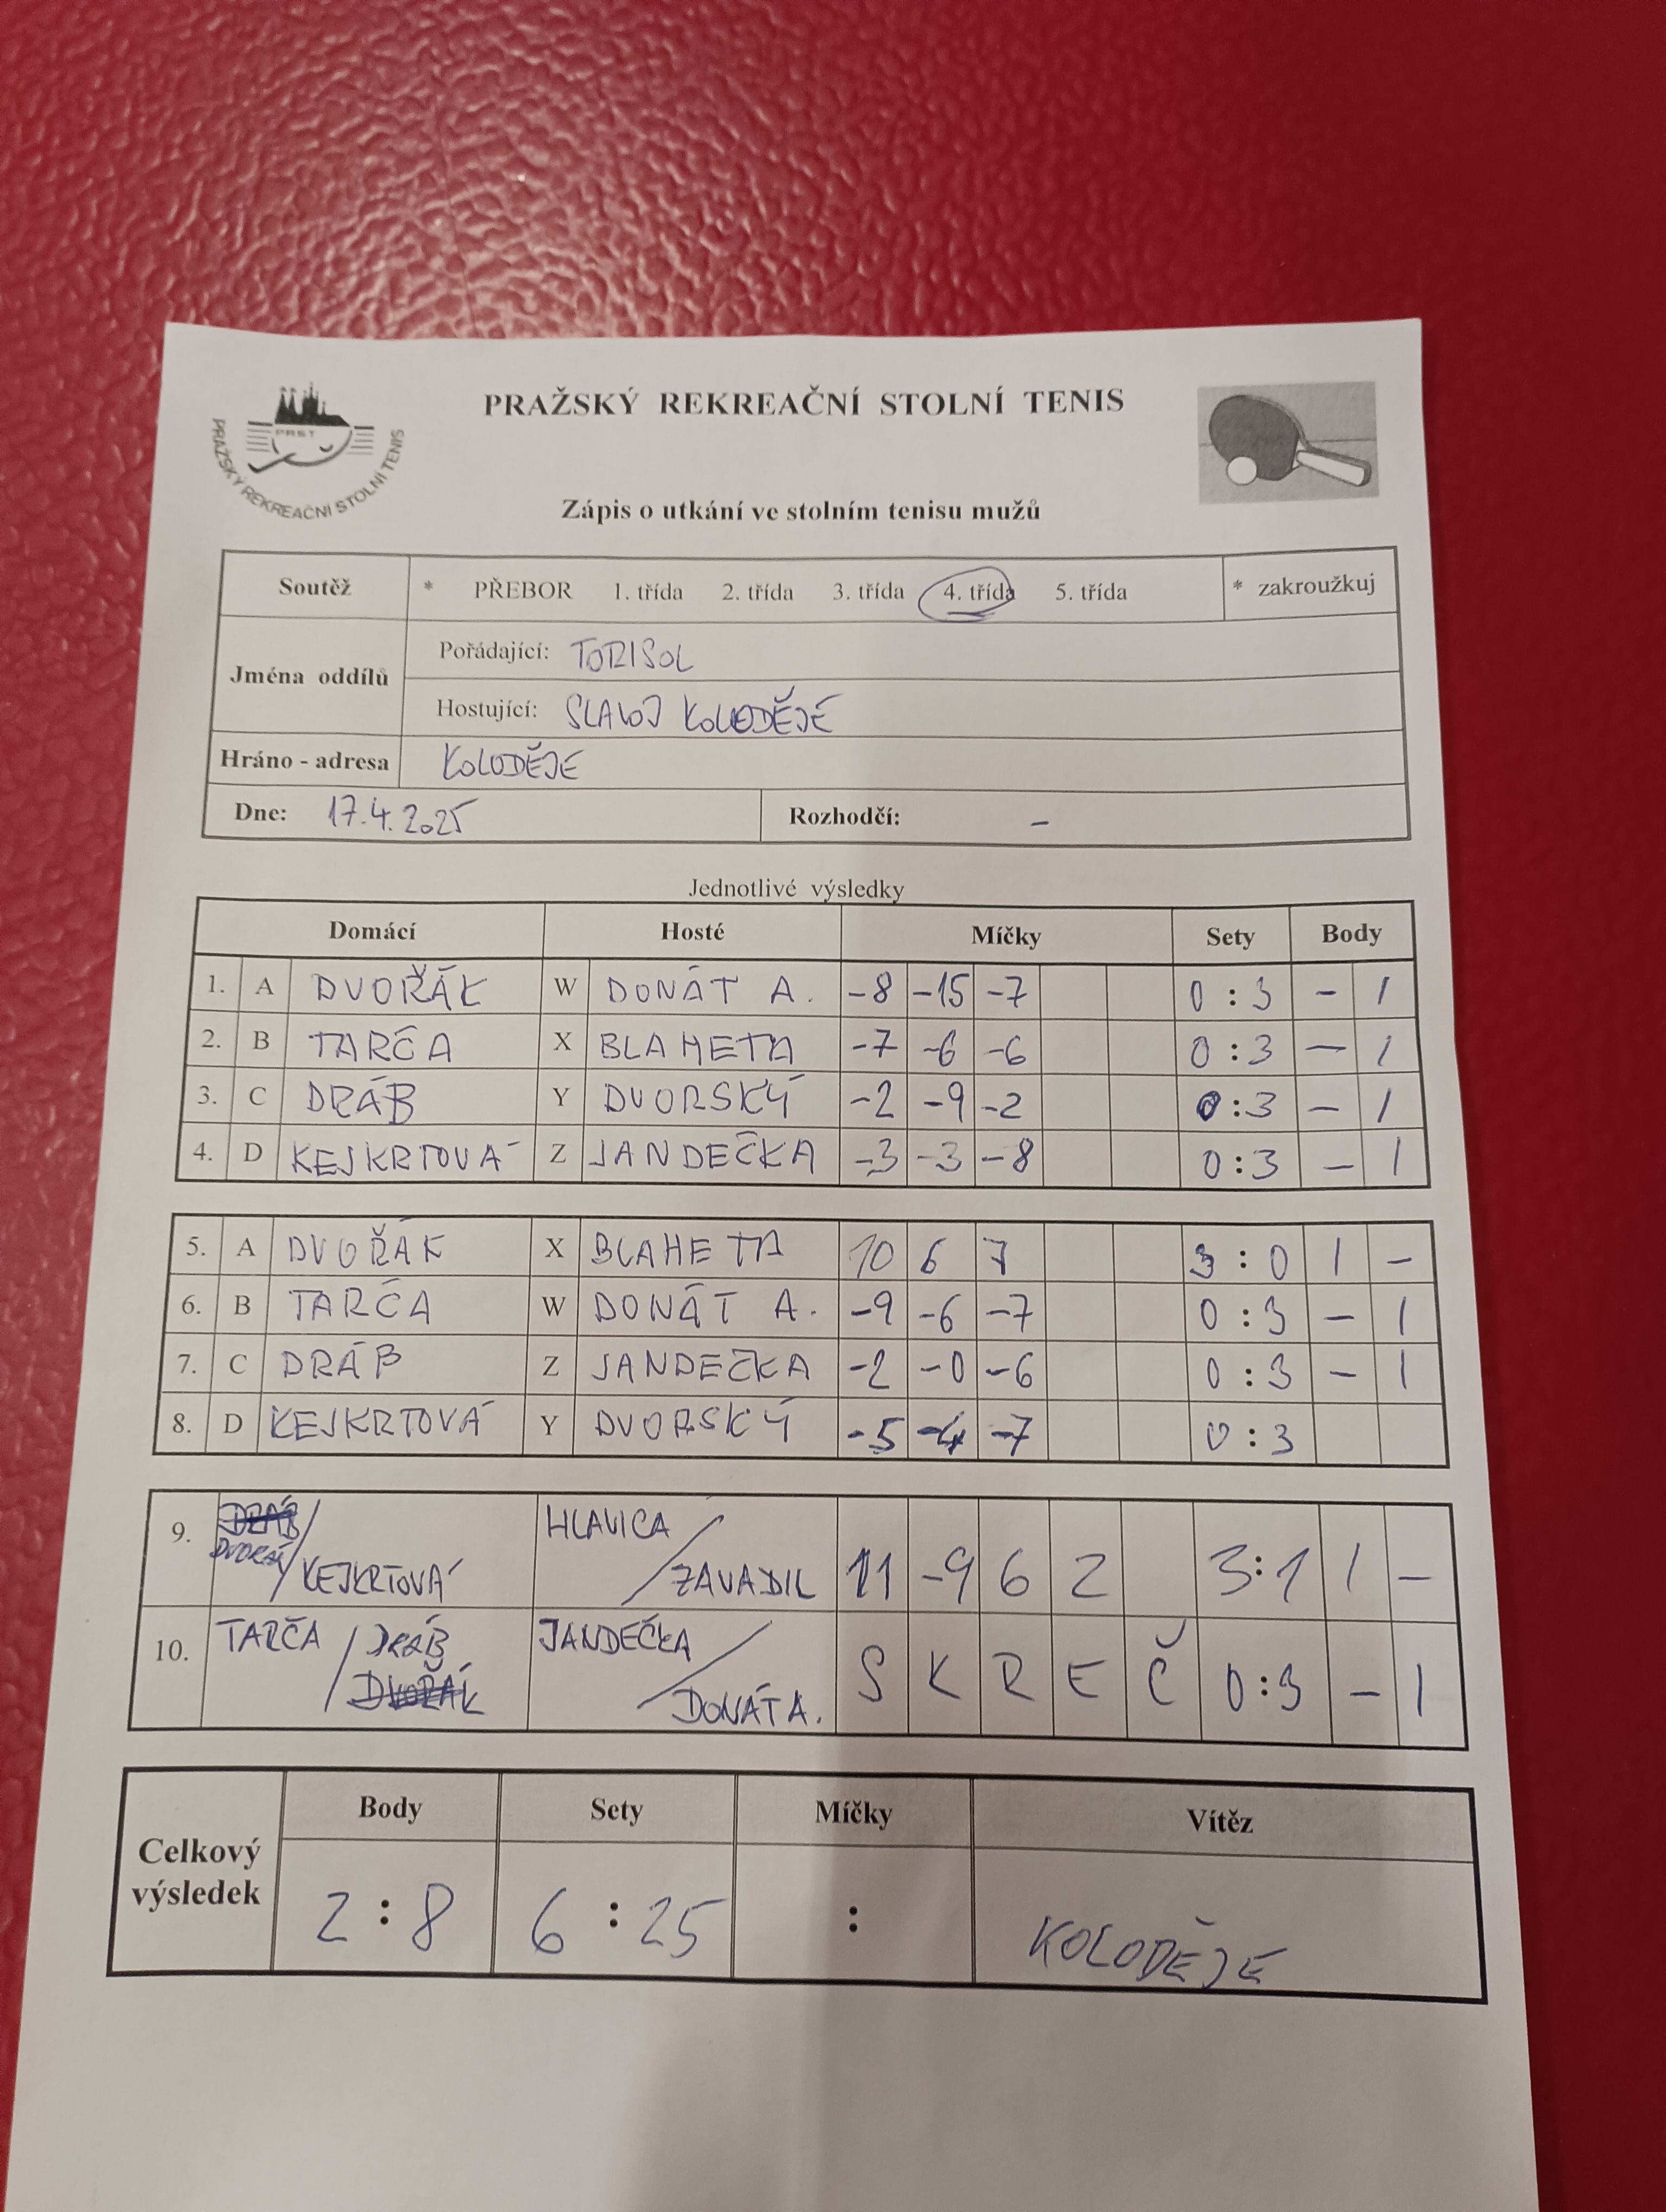 PRAŽSKÝ REKREAČNÍ STOLNÍ TENIS
PRST
PRAŽSKÝ REKREAČNÍ STOLNÍ TENIS
Zápis o utkání ve stolním tenisu mužů
Soutěž * PŘEBOR 1. třída 2. třída 3. třída 4. třída 5. třída * zakroužkuj
Jména oddílů
Pořádající: TORISOL
Hostující: SLAVOJ KOLODĚJE
Hráno - adresa KOLODĚJE
Dne: 17.4.2025 Rozhodčí: –
Jednotlivé výsledky
Domácí Hosté Míčky Sety Body
1. A DVOŘÁK W DONÁT A. -8 -15 -7 0 : 3 - 1
2. B TARČA X BLAHETA -7 -6 -6 0 : 3 - 1
3. C DRÁB Y DVORSKÝ -2 -9 -2 0 : 3 - 1
4. D KEJKRTOVÁ Z JANDEČKA -3 -3 -8 0 : 3 - 1
5. A DVOŘÁK X BLAHETA 10 6 7 3 : 0 1 -
6. B TARČA W DONÁT A. -9 -6 -7 0 : 3 - 1
7. C DRÁB Z JANDEČKA -2 -0 -6 0 : 3 - 1
8. D KEJKRTOVÁ Y DVORSKÝ -5 -4 -7 0 : 3
9. DRÁB DVOŘÁK / KEJKRTOVÁ HLAVICA / ZAVADIL 11 -9 6 2 3:1 1 -
10. TARČA / DRÁB DVOŘÁK JANDEČKA / DONÁT A. S K R E Č 0:3 - 1
Celkový výsledek
Body Sety Míčky Vítěz
2 : 8 6 : 25 : KOLODĚJE